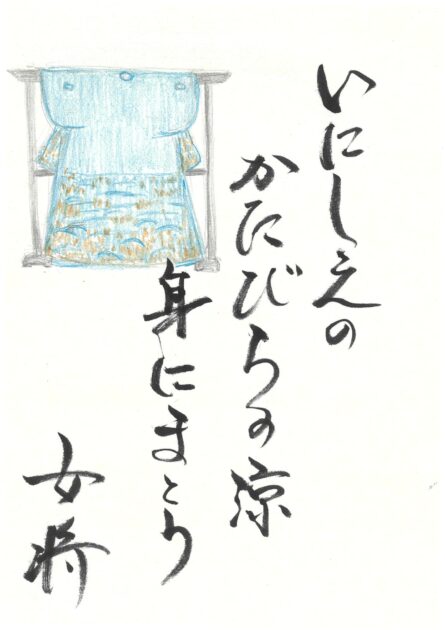 いにしえの
かたびらの涼
身にまとう
女将